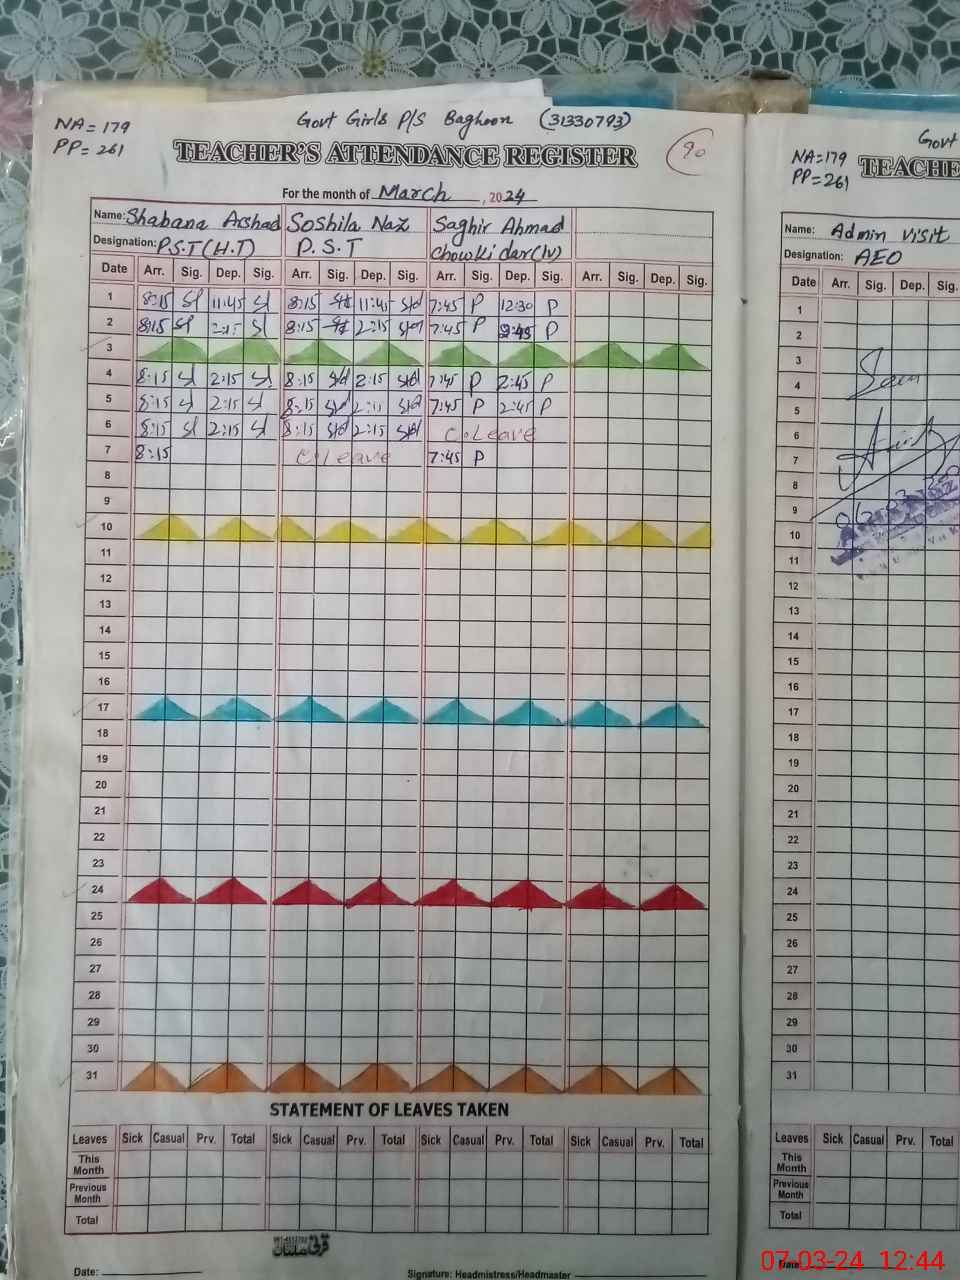 Govt Girls P/S Baghoon (31330793)
NA = 179
PP = 261
TEACHER'S ATTENDANCE REGISTER
90
For the month of March , 2024
Name: Shabana Arshad Soshila Naz Saghir Ahmad
Designation: P.S.T (H.T) P.S.T Chowkidar (IV)
Date Arr. Sig. Dep. Sig. Arr. Sig. Dep. Sig. Arr. Sig. Dep. Sig. Arr. Sig. Dep. Sig.
1 8:15 11:45 8:15 11:45 7:45 P 12:30 P
2 8:15 2:15 8:15 2:15 7:45 P 2:45 P
3
4 8:15 2:15 8:15 2:15 7:45 P 2:45 P
5 8:15 2:15 8:15 2:15 7:45 P 2:45 P
6 8:15 2:15 8:15 2:15 C.Leave
7 8:15 C.Leave 7:45 P
8
9
10
11
12
13
14
15
16
17
18
19
20
21
22
23
24
25
26
27
28
29
30
31
STATEMENT OF LEAVES TAKEN
Leaves Sick Casual Prv. Total Sick Casual Prv. Total Sick Casual Prv. Total Sick Casual Prv. Total
This Month
Previous Month
Total
Date:
Signature: Headmistress/Headmaster
Govt
NA=179
PP=261
TEACHE
Name: Admin visit
Designation: AEO
Date Arr. Sig. Dep. Sig.
1
2
3
4
5
6
7
8
9
10
11
12
13
14
15
16
17
18
19
20
21
22
23
24
25
26
27
28
29
30
31
Leaves Sick Casual Prv. Total
This Month
Previous Month
Total
Date:
07-03-24 12:44